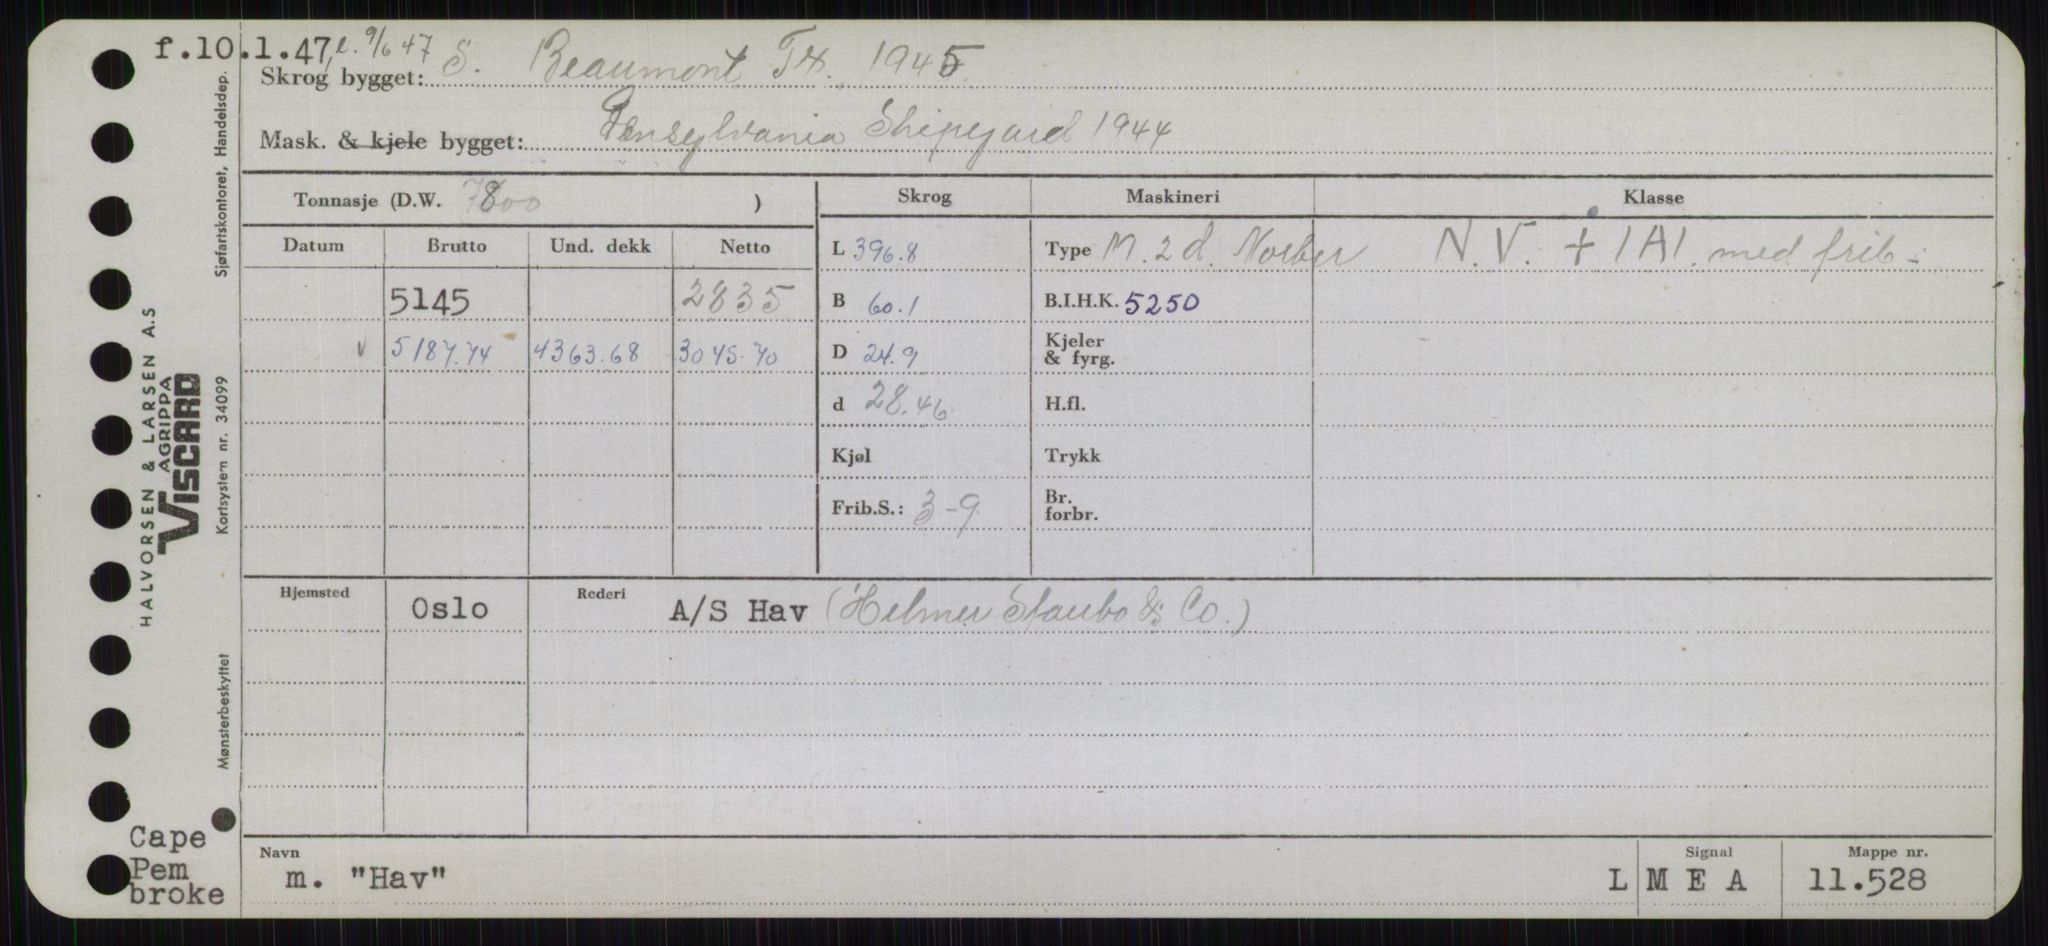 f.10.1.47, l. 9/6 47
Skrog bygget: S. Beaumont Tex. 1945
Mask. & kjele bygget: Pensylvania Shipyard 1944
Tonnasje (D.W. 7800 )
Skrog Maskineri Klasse
Datum Brutto Und. dekk Netto
L 396.8 Type M. 2 d. Norber N.V. + 1A1. med frib.
5145 2835
B 60.1 B.I.H.K. 5250
v 5187.74 4363.68 3045.70
D 24.9 Kjeler
& fyrg.
d 28.46 H.fl.
Kjøl Trykk
Frib.S.: 3-9 Br.
forbr.
Hjemsted Oslo Rederi A/S Hav (Helmer Staubo & Co.)
Navn m. "Hav"
L M E A Signal
Mappe nr. 11.528
Cape
Pem
broke
HALVORSEN & LARSEN A.S
AGRIPPA
VISCARD
Sjøfartskontoret, Handelsdep.
Kortsystem nr. 34099
Mønsterbeskyttet